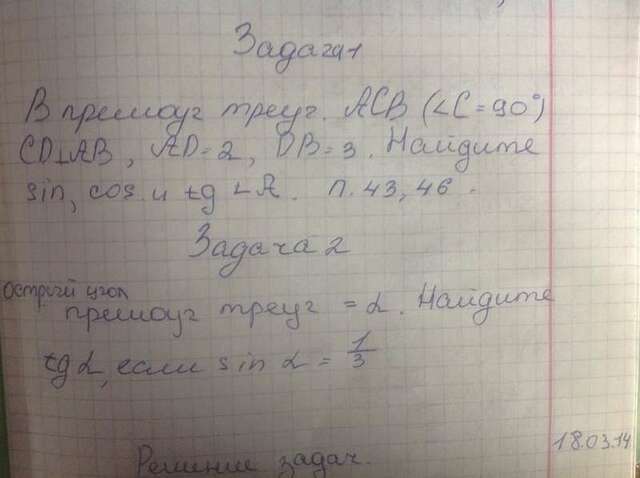 Задача 1
В прямоуг треуг. АСВ (∠С=90°)
CD⊥AB, AD=2, DB=3. Найдите
sin, cos и tg ∠A. п. 43, 46.
Задача 2
Острый угол
прямоуг треуг = α. Найдите
tg α, если sin α = 1/3
18.03.14
Решение задач.